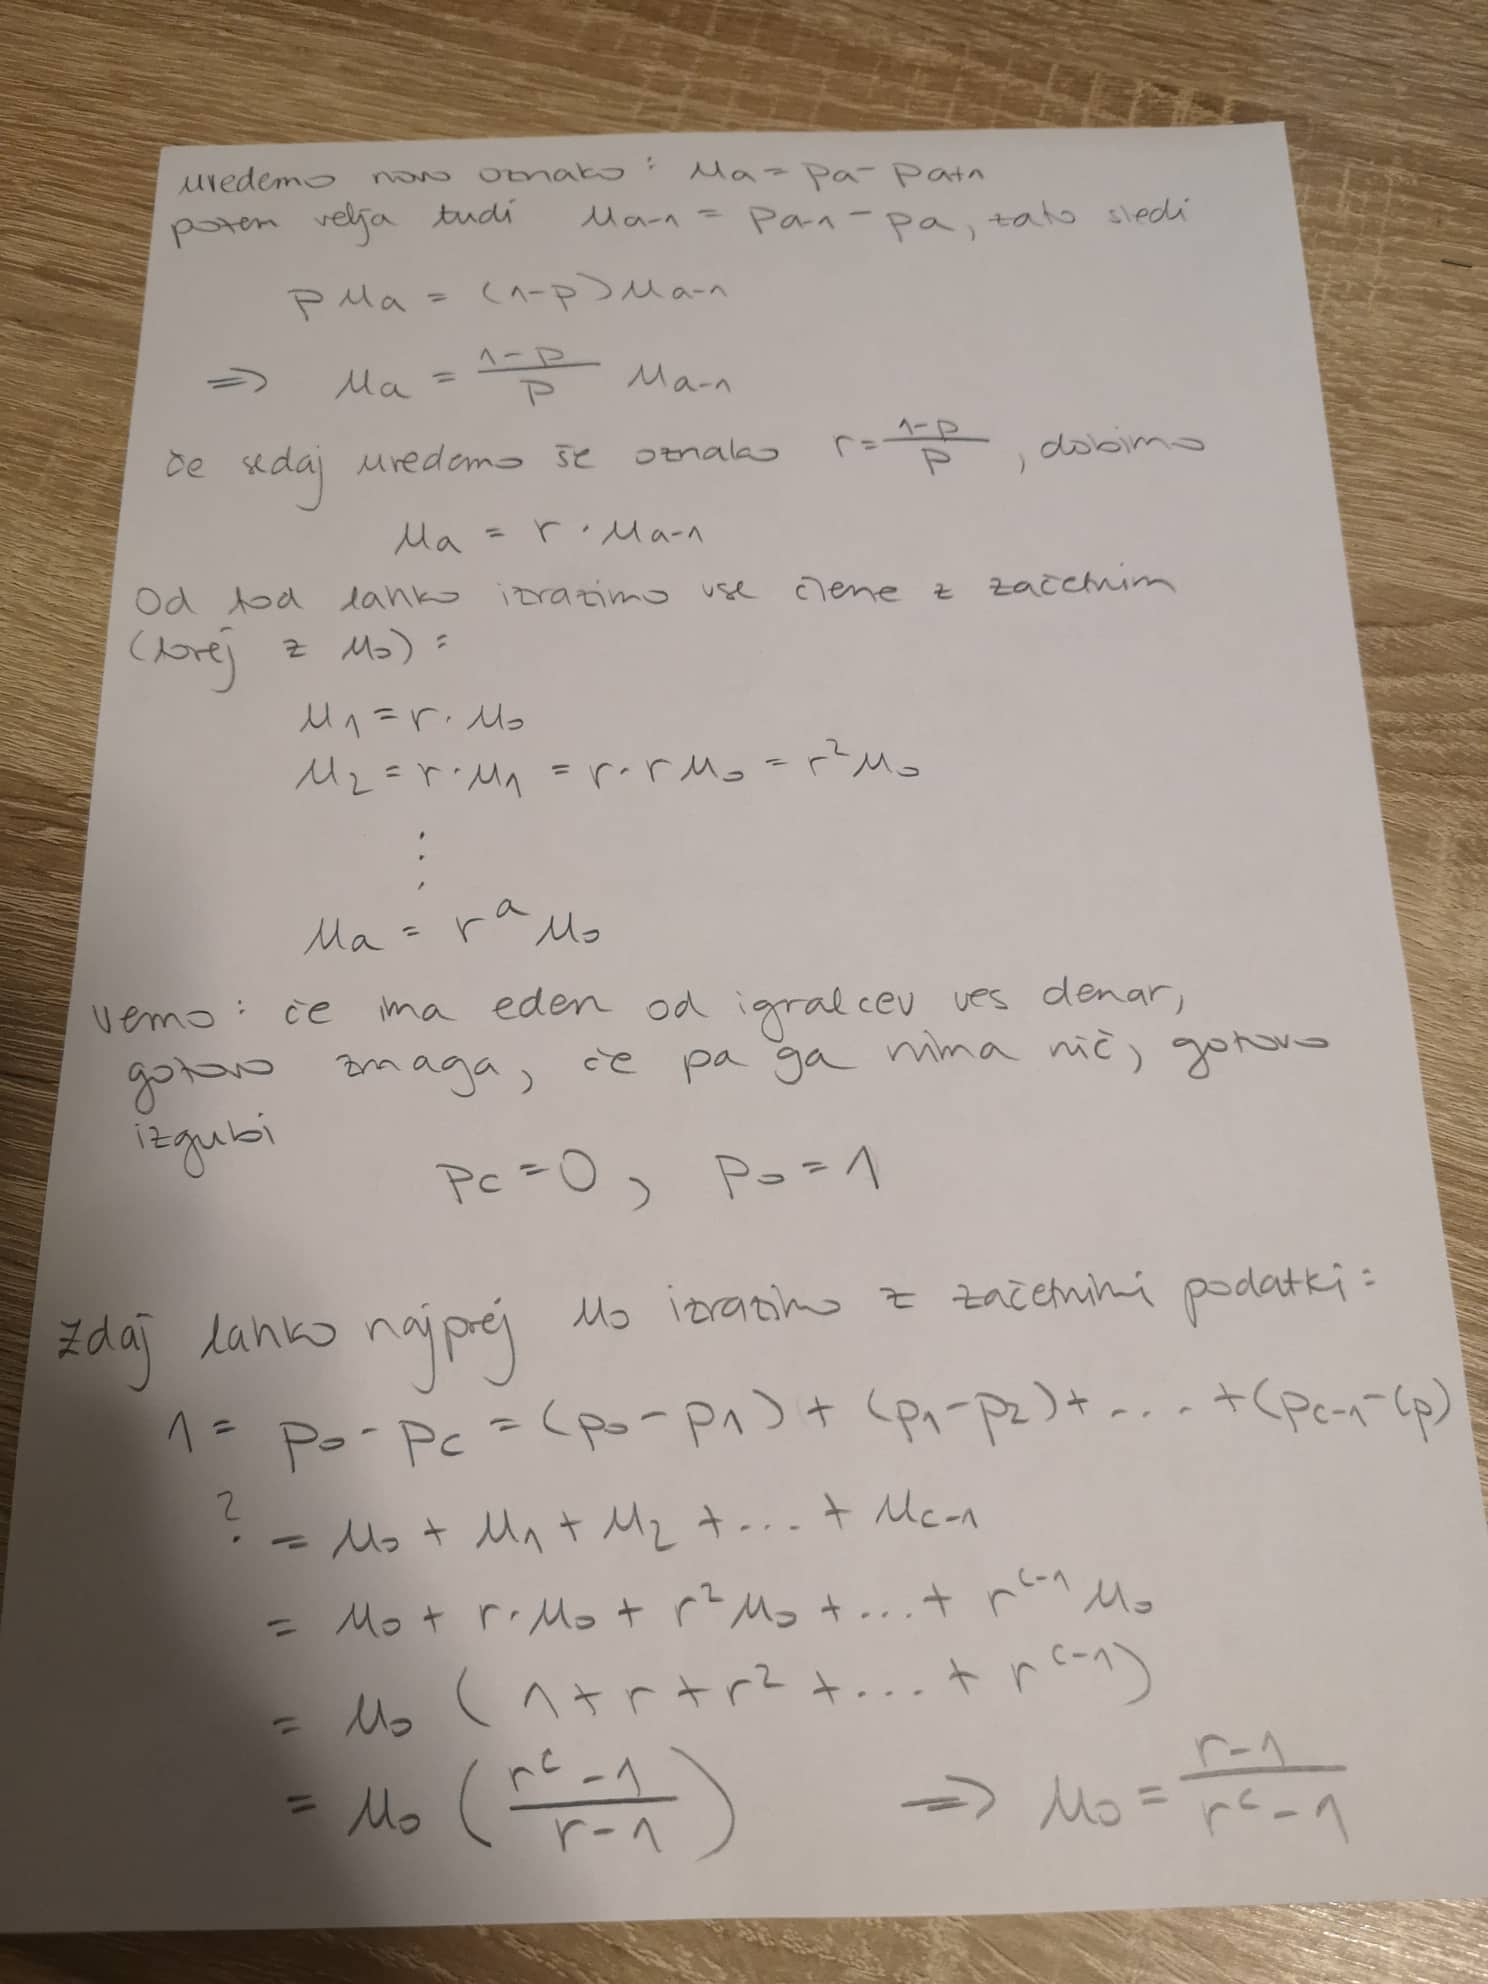 uvedemo novo oznako: u_a = p_a - p_{a+1}
potem velja tudi u_{a-1} = p_{a-1} - p_a, zato sledi
p u_a = (1-p) u_{a-1}
=> u_a = \frac{1-p}{p} u_{a-1}
če sedaj uvedemo še oznako r = \frac{1-p}{p}, dobimo
u_a = r · u_{a-1}
Od tod lahko izrazimo vse člene z začetnim
(torej z u_0):
u_1 = r · u_0
u_2 = r · u_1 = r · r u_0 = r^2 u_0
⋮
u_a = r^a u_0
vemo: če ima eden od igralcev ves denar,
gotovo zmaga, če pa ga nima nič, gotovo
izgubi
p_c = 0, p_0 = 1
Zdaj lahko najprej u_0 izrazimo z začetnimi podatki:
1 = p_0 - p_c = (p_0 - p_1) + (p_1 - p_2) + .... + (p_{c-1} - (p)
? = u_0 + u_1 + u_2 + ... + u_{c-1}
= u_0 + r · u_0 + r^2 u_0 + ... + r^{c-1} u_0
= u_0 (1 + r + r^2 + ... + r^{c-1})
= u_0 (\frac{r^c - 1}{r - 1}) => u_0 = \frac{r-1}{r^c - 1}